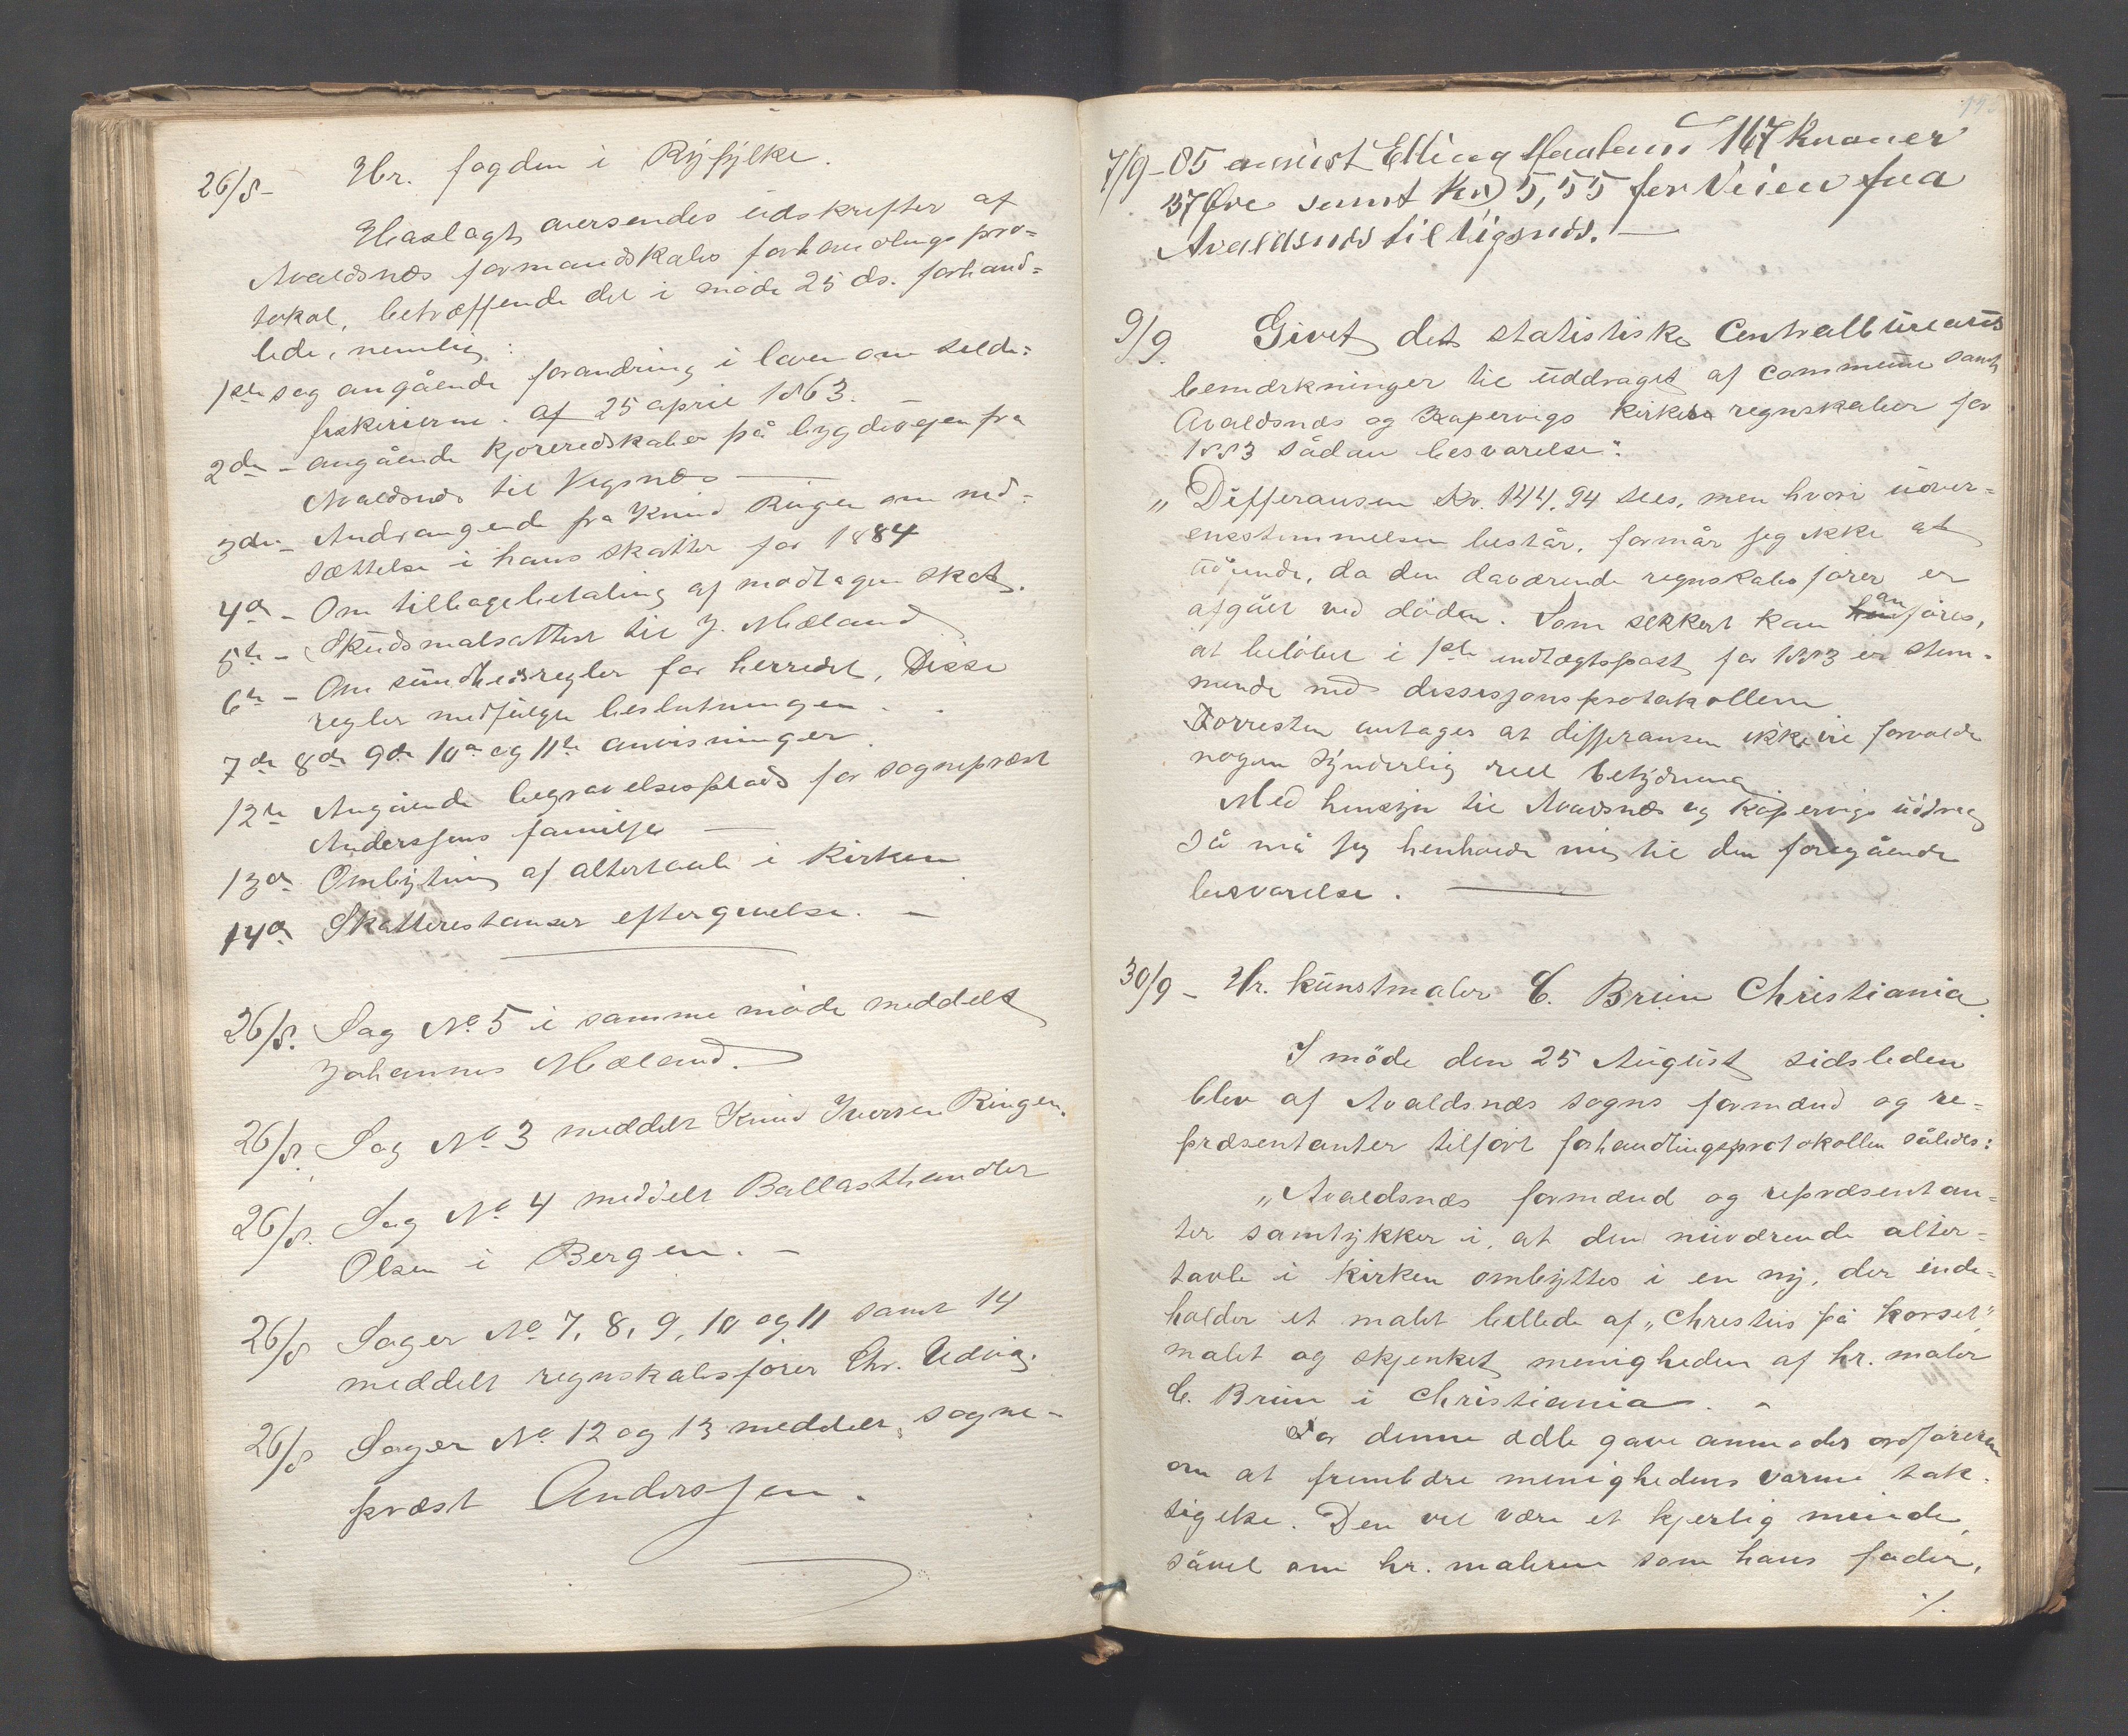 26/8 - Hr. fogden i Ryfylke.
Hoslagt oversendes udskrifter af
Avaldsnæs formandskabs forhandlings pro-
tokol, betræffende det i møde 25 ds. forhand-
lede, nemlig:
1ste sag angående forandring i loven om silde-
fiskerierne af 25 april 1863.
2den - angående kjøreredskaber på bygdevejen fra
Avaldsnæs til Vigsnæs
3die - Andragende fra Knud Ringen om ned-
sættelse i hans skatter for 1884
4de - Om tilbagebetaling af modtagen skat.
5te - Skudsmålsattest til J. Mæland
6te - Om sundhedsregler for herredet, Disse
regler medfølger beslutningen.
7de 8de 9de 10de og 11te anvisninger.
12te Angående begravelsesplads for sogneprest
Anderssens familje
13de Ombytning af altertavle i Kirken
14de Skatterestanser eftergivelse. -
26/8. Sag No 5 i samme møde meddelt
Johannes Mæland.
26/8. Sag No 3 meddelt Knud Iversen Ringen.
26/8. Sag No 4 meddelt Ballasthandler
Olsen i Bergen. -
26/8 Sager No 7, 8, 9, 10 og 11 samt 14
meddelt regnskabsfører Chr. Udvig.
26/8 Sager No 12 og 13 meddelt sogne-
præst Anderssen.
7/9 - 85 anvist Elling Haaland 167 Kroner
37 Øre samt Kr 5,55 for Veien fra
Avaldsnæs til Vigsnæs. -
9/9. Givet det statistiske Centralbureaus
bemærkninger til uddraget af Commune samt
Avaldsnæs og Kopervigs kirkers regnskaber for
1883 sådan besvarelse:
„Differansen Kr. 144,94 sees, men hvori uover-
ensstemmelsen består, formår jeg ikke at
udfinde, da den daværende regnskabsfører er
afgået ved døden. Som sikkert kan anføres,
at beløbet i 1ste indtægtspost for 1883 er stem-
mende med decisjonsprotokollen
Forresten antages at differansen ikke vil forvolde
nogen synderlig reel betydning
Med hensyn til Avaldsnæs og Kopervigs uddrag
så må jeg henholde mig til den foregående
besvarelse.
30/9 - Hr. kunstmaler C. Brun Christiania.
I møde den 25 August sidsleden
blev af Avaldsnæs sogns formænd og re-
præsentanter tilført forhandlingsprotokollen således:
„Avaldsnæs formænd og repræsentan-
ter samtykker i, at den nuværende alter-
tavle i kirken ombyttes i en ny, der inde-
holder et malet billede af „Christus på korset",
malet og skjenket menigheden af hr. maler
C. Brun i Christiania. -
For denne ædle gave anmodes ordføreren
om at frembære menighedens varme tak-
sigelse. Den vil være et kjerlig minde,
såvel om hr. maleren som hans fader,
·/.